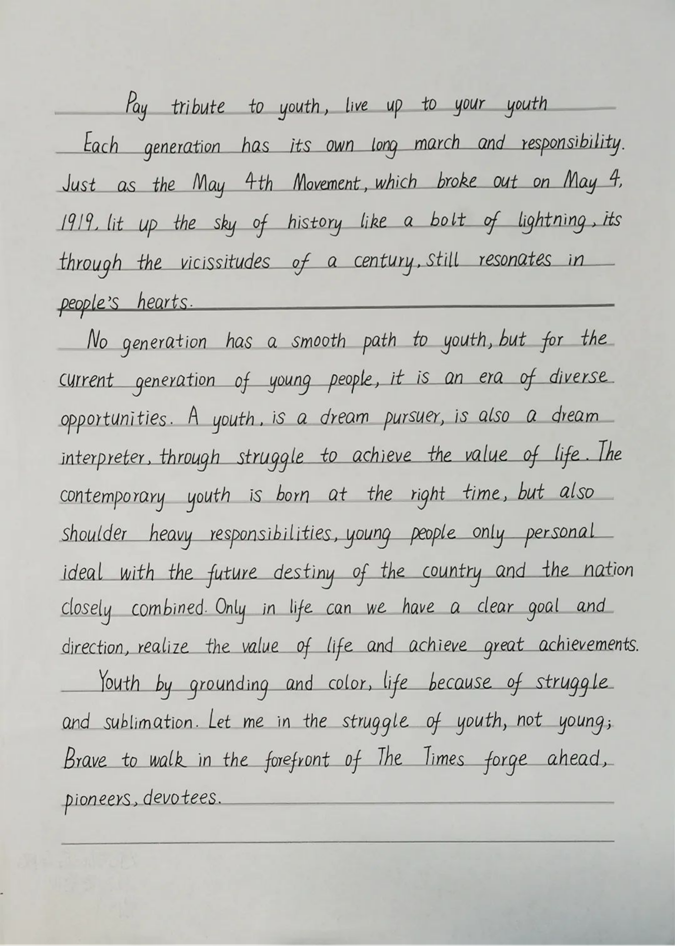 Pay tribute to youth, live up to your youth
Each generation has its own long march and responsibility.
Just as the May 4th Movement, which broke out on May 4,
1919, lit up the sky of history like a bolt of lightning, its
through the vicissitudes of a century, still resonates in
people's hearts.
No generation has a smooth path to youth, but for the
current generation of young people, it is an era of diverse
opportunities. A youth, is a dream pursuer, is also a dream
interpreter, through struggle to achieve the value of life. The
contemporary youth is born at the right time, but also
shoulder heavy responsibilities, young people only personal
ideal with the future destiny of the country and the nation
closely combined. Only in life can we have a clear goal and
direction, realize the value of life and achieve great achievements.
Youth by grounding and color, life because of struggle
and sublimation. Let me in the struggle of youth, not young;
Brave to walk in the forefront of The Times forge ahead,
pioneers, devotees.